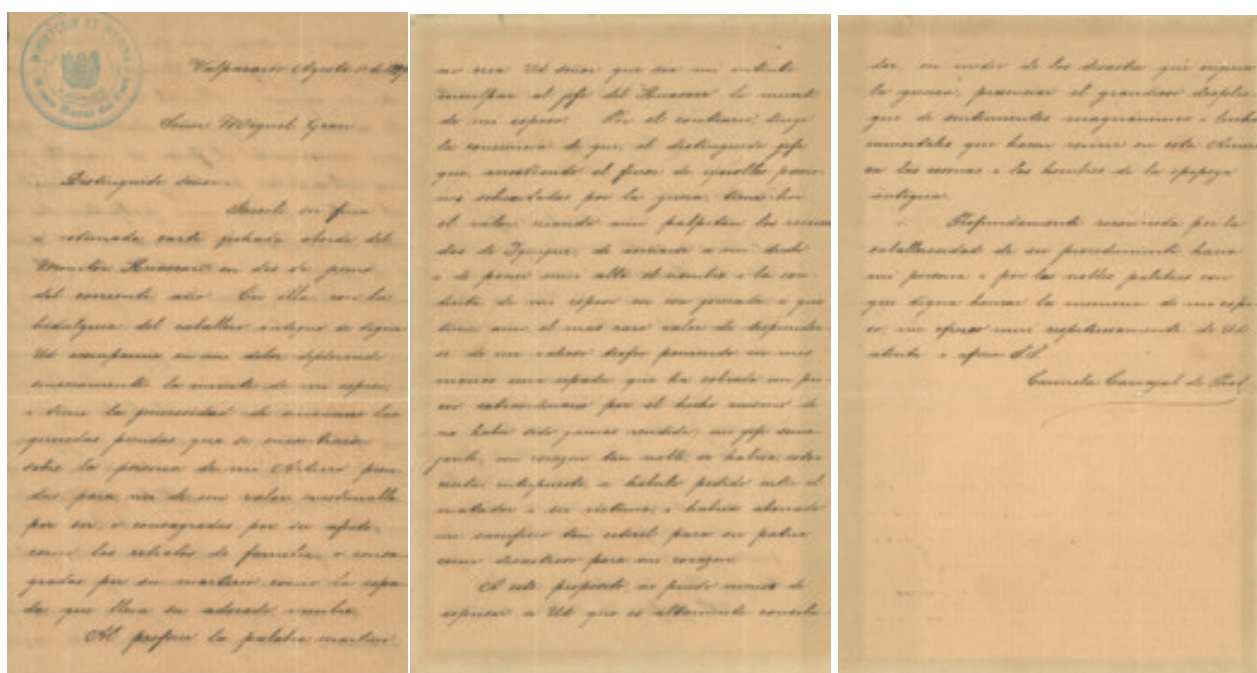 Valparaiso Agosto 1º de 1879
Señor Miguel Grau
Distinguido señor:
Recibí su fina
i estimada carta fechada abordo del
Monitor Huascar en dos de junio
del corriente año. En ella con la
hidalguia del caballero antiguo se digna
Ud acompañarme en mi dolor deplorando
sinceramente la muerte de mi esposo;
i tiene la jenerosidad de enviarme las
queridas prendas que se encontraron
sobre la persona de mi Arturo, pren
das para mi de un valor inestimable
por ser, o consagradas por su afecto,
como los retratos de familia, o consa
gradas por su martirio como la espa
da que lleva su adorado nombre.
Al proferir la palabra martirio
no crea Ud señor que sea mi intento
inculpar al jefe del Huascar la muerte
de mi esposo. Por el contrario, tengo
la conciencia de que, el distinguido jefe
que, arrostrando el furor de pasio
nes sobreexcitadas por la guerra, tiene hoi
el valor cuando aun palpitan los recuer
dos de Iquique, de asociarse a mi duelo
i de poner mui alto el nombre i la con
ducta de mi esposo en esa jornada, i que
tiene aun el mas raro valor de desprender
se de un valioso trofeo poniendo en mis
manos una espada que ha cobrado un pre
cio extraordinario por el hecho mismo de
no haber sido jamas rendida; un jefe seme
jante, un corazon tan noble, se habria, estoi
cierta, interpuesto, a haberlo podido entre el
matador i su victima, i habria ahorrado
un sacrificio tan esteril para su patria
como desastroso para mi corazon.
A este proposito, no puedo menos de
espresar a Ud que es altamente consola
dor, en medio de los desastres que orijina
la guerra, presenciar el grandioso desplie
gue de sentimientos magnanimos i luchas
inmortales que hacen revivir en esta America
las escenas i los hombres de la epopeya
antigua.
Profundamente reconocida por la
caballerosidad de su procedimiento hacia
mi persona i por las nobles palabras con
que se digna honrar la memoria de mi espo
so, me ofrezco mui respetuosamente de Ud
atenta i afma S.S.
Carmela Carvajal de Prat